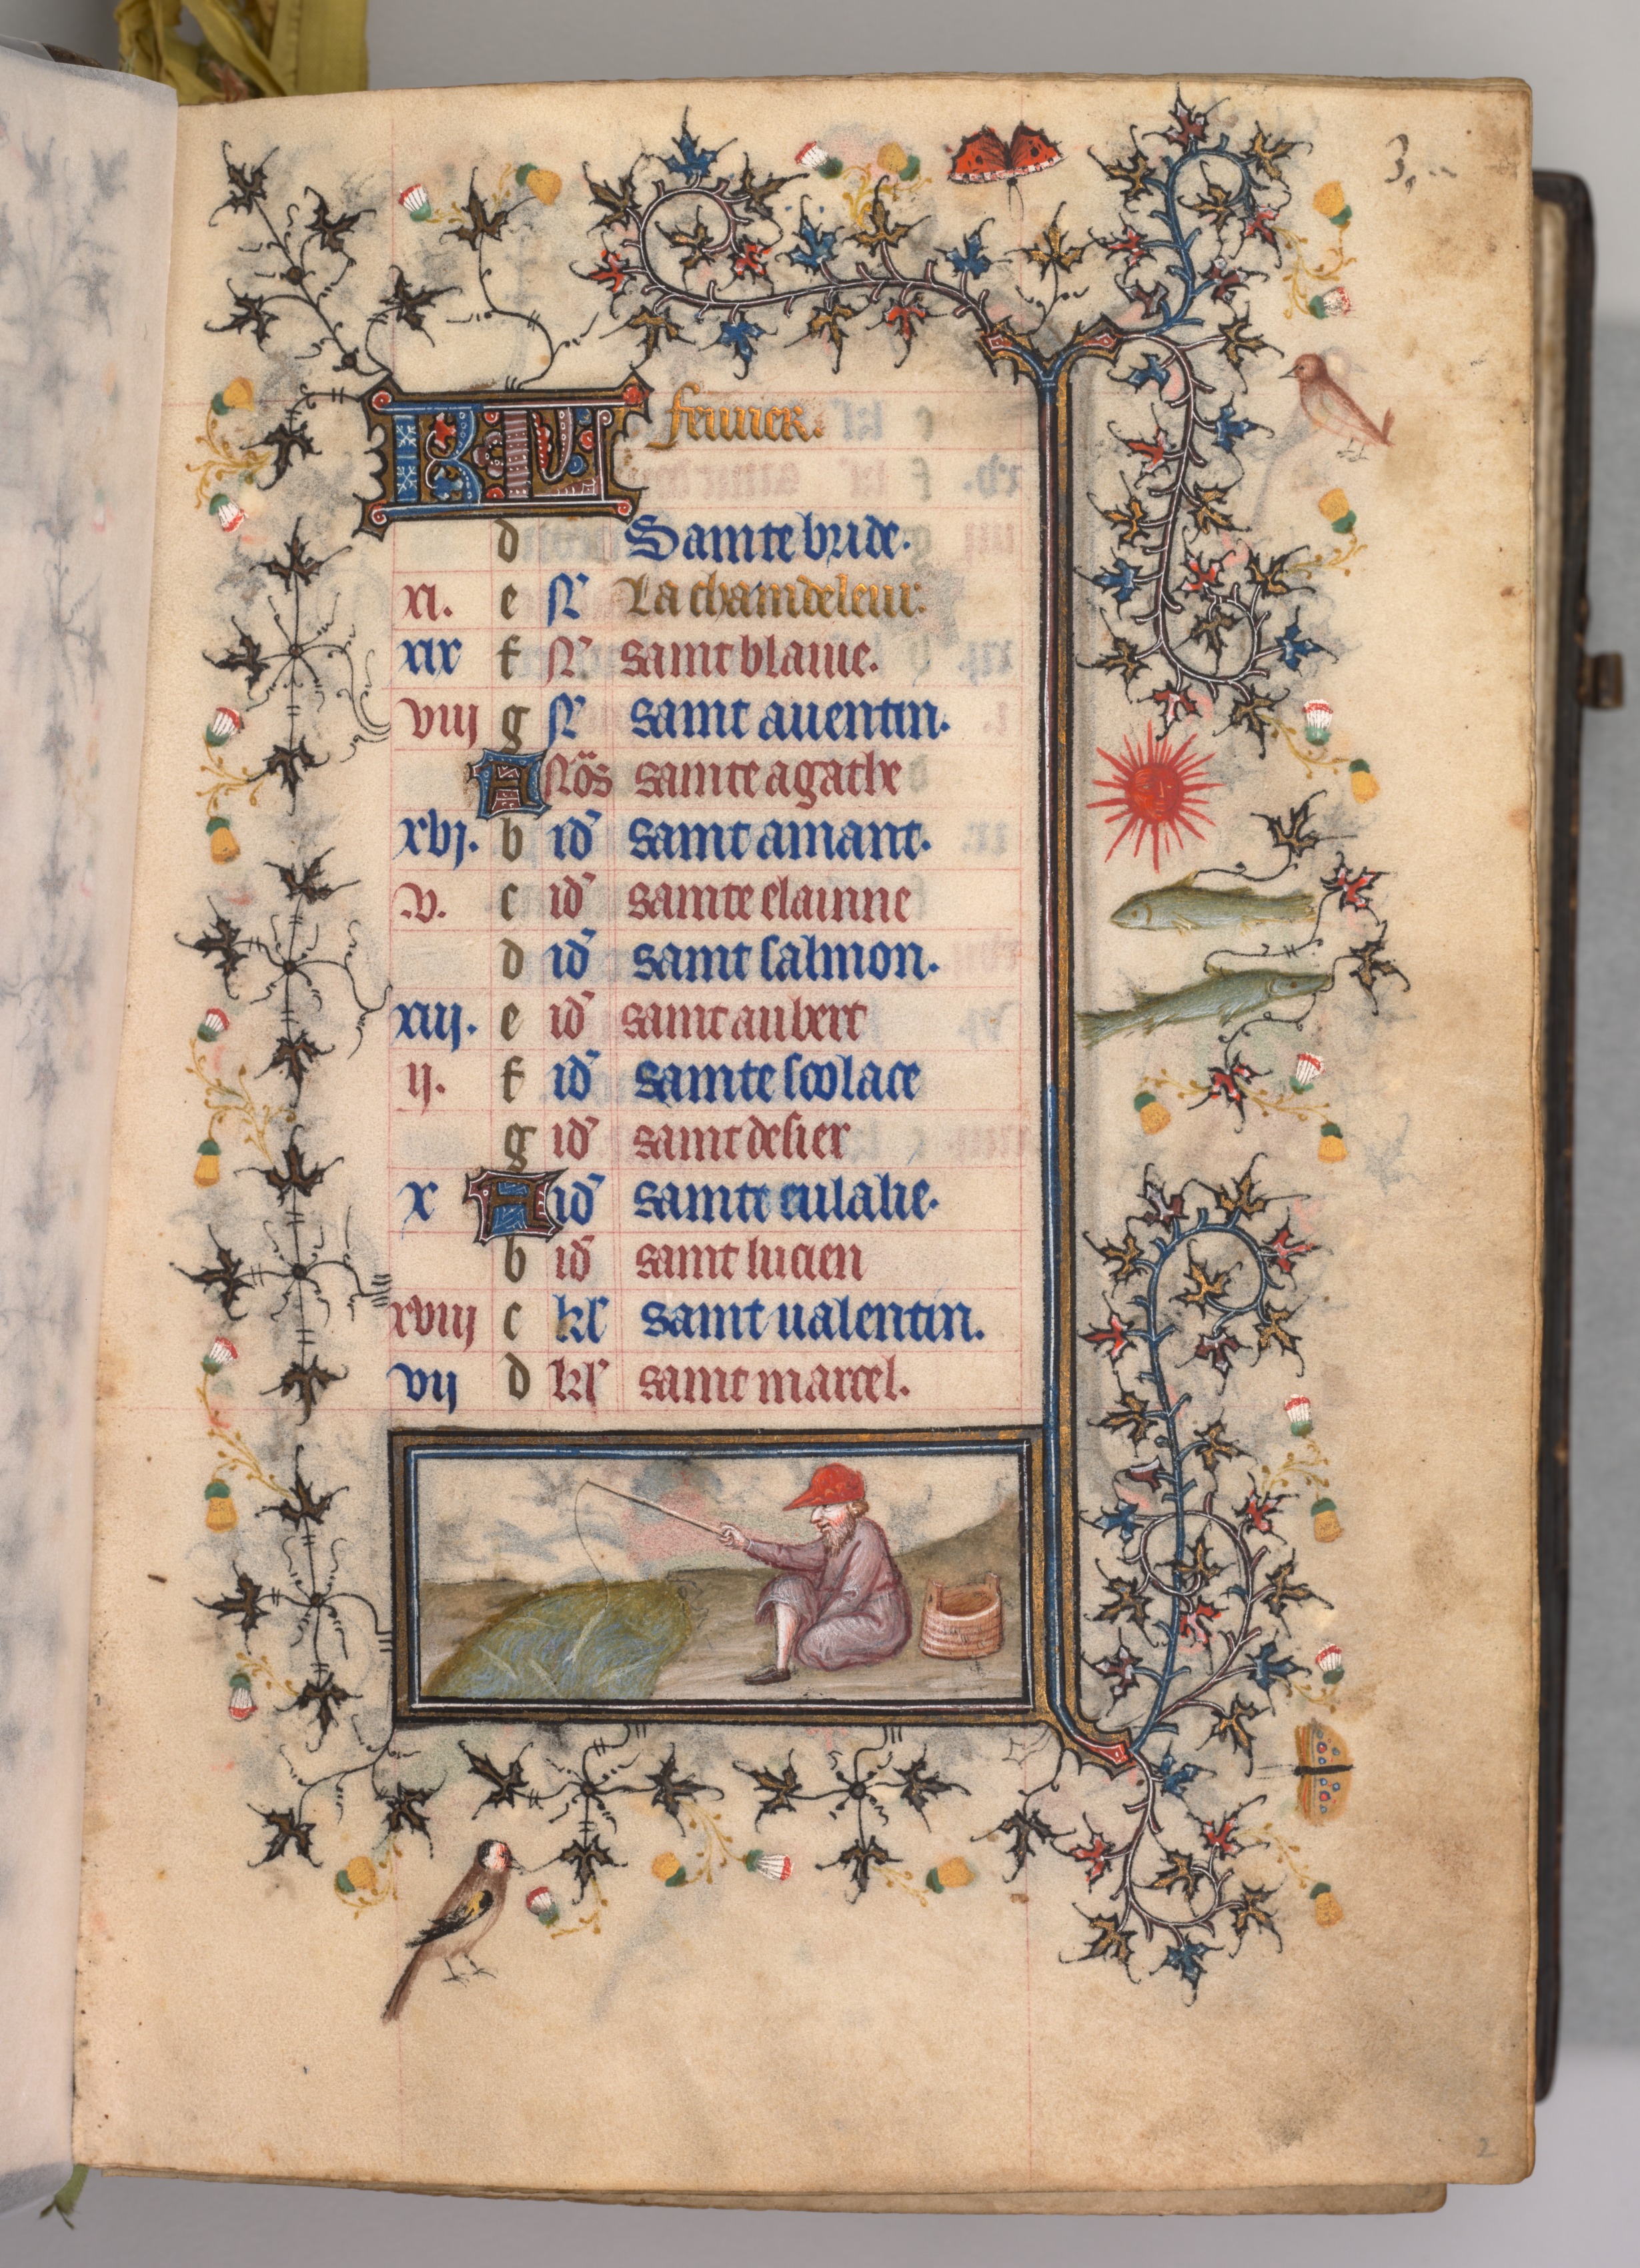 3
KL feurier.
d Sainte bride.
xi. e N La chandeleur.
xix f N saint blaiue.
viij g N saint auentin.
A Nōs sainte agathe
xvj. b id saint amant.
v. c id sainte elainne
d id saint salmon.
xiij. e id saint aubert
ij. f id sainte scolace
g id saint desier
x A id sainte eulalie.
b id saint lucien
xviij c kl saint ualentin.
vij d kl saint marcel.
2